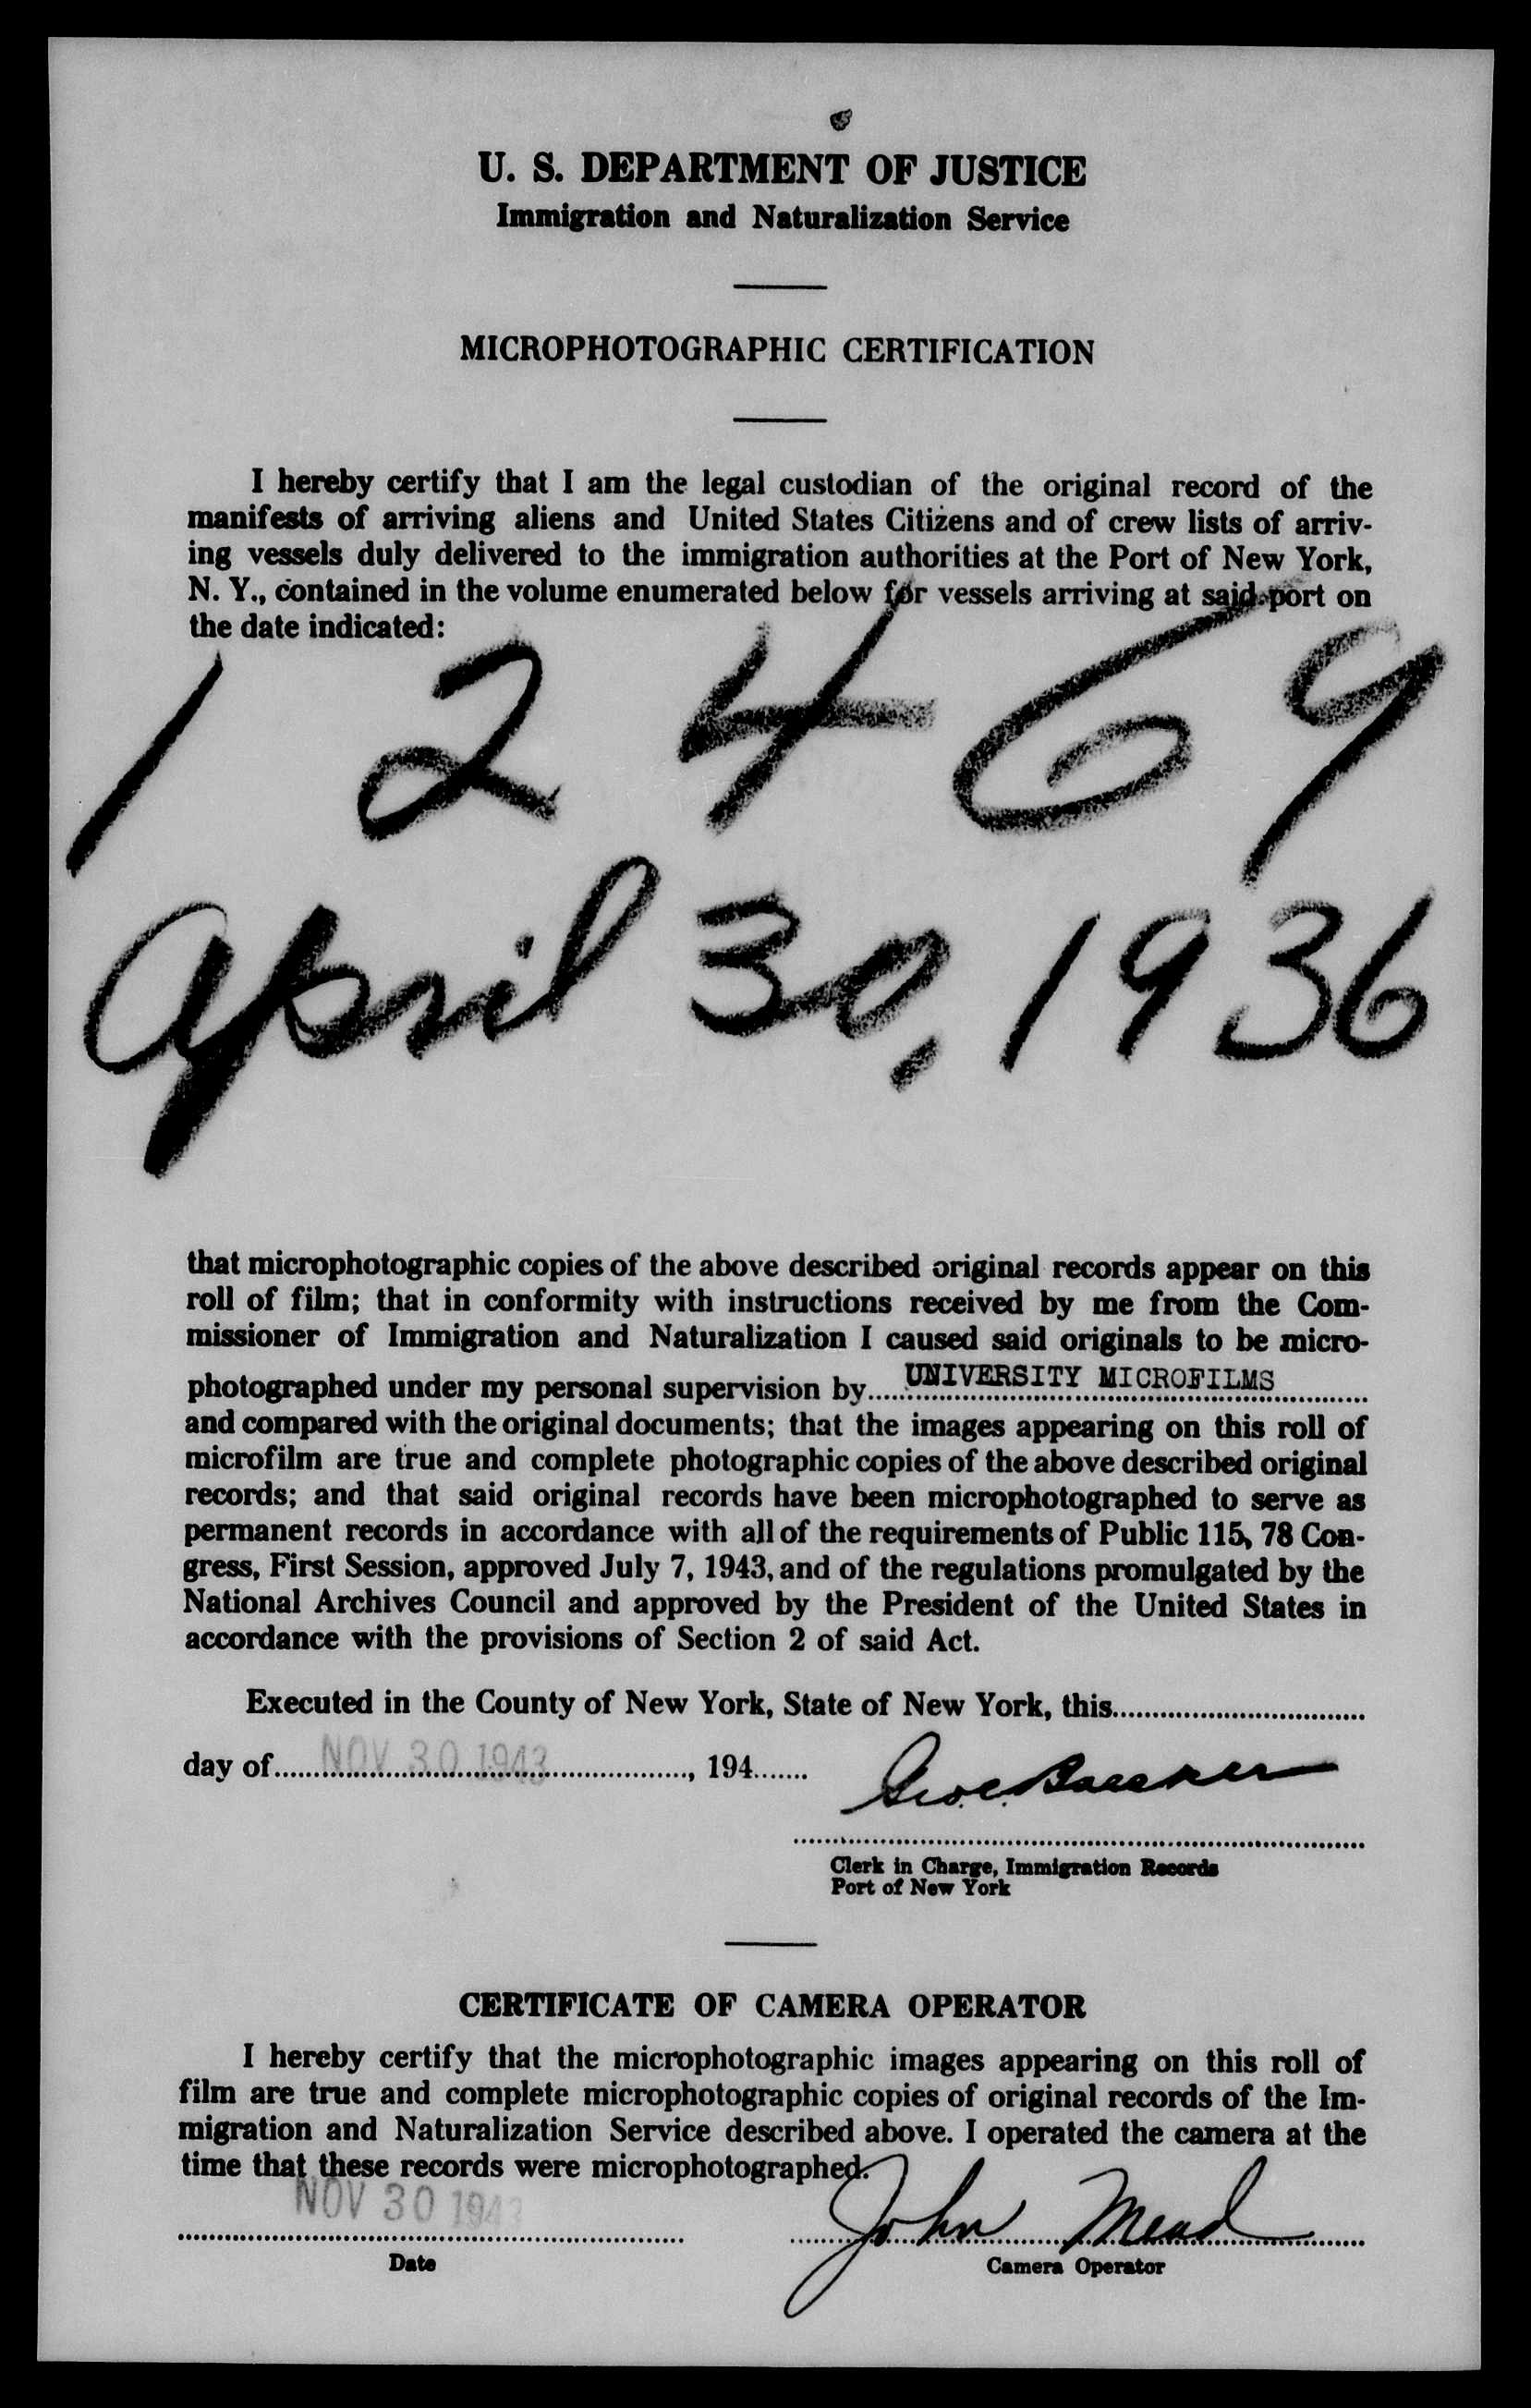 U. S. DEPARTMENT OF JUSTICE
Immigration and Naturalization Service
MICROPHOTOGRAPHIC CERTIFICATION
I hereby certify that I am the legal custodian of the original record of the
manifests of arriving aliens and United States Citizens and of crew lists of arriv-
ing vessels duly delivered to the immigration authorities at the Port of New York,
N. Y., contained in the volume enumerated below for vessels arriving at said port on
the date indicated:
1 2 4 6 9
April 30, 1936
that microphotographic copies of the above described original records appear on this
roll of film; that in conformity with instructions received by me from the Com-
missioner of Immigration and Naturalization I caused said originals to be micro-
photographed under my personal supervision by UNIVERSITY MICROFILMS
and compared with the original documents; that the images appearing on this roll of
microfilm are true and complete photographic copies of the above described original
records; and that said original records have been microphotographed to serve as
permanent records in accordance with all of the requirements of Public 115, 78 Con-
gress, First Session, approved July 7, 1943, and of the regulations promulgated by the
National Archives Council and approved by the President of the United States in
accordance with the provisions of Section 2 of said Act.
Executed in the County of New York, State of New York, this
day of NOV 30 1943, 194
Clerk in Charge, Immigration Records
Port of New York
CERTIFICATE OF CAMERA OPERATOR
I hereby certify that the microphotographic images appearing on this roll of
film are true and complete microphotographic copies of original records of the Im-
migration and Naturalization Service described above. I operated the camera at the
time that these records were microphotographed.
NOV 30 1943 John Mead
Date Camera Operator